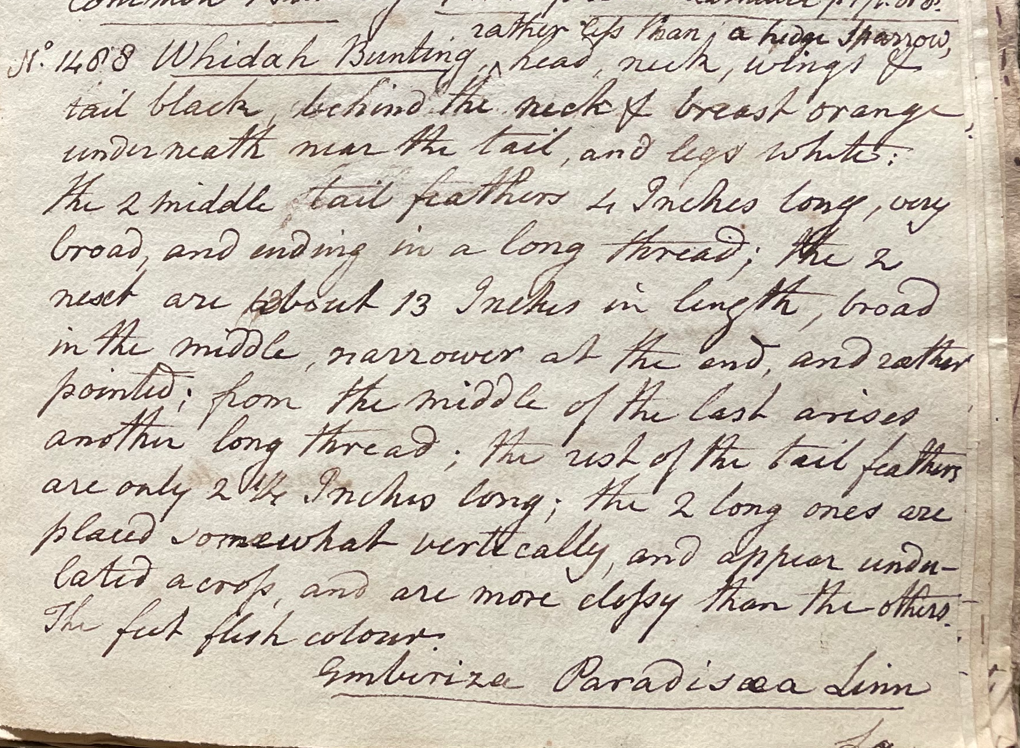 Common
rather less than a hedge sparrow,
No. 1488 Whidah Bunting, ^ head, neck, wings &
tail black, behind the neck & breast orange,
underneath near the tail, and legs white:
the 2 middle tail feathers 4 Inches long, very
broad, and ending in a long thread; the 2
next are about 13 Inches in length, broad
in the middle, narrower at the end, and rather
pointed; from the middle of the last arises
another long thread; the rest of the tail feathers
are only 2 1/2 Inches long; the 2 long ones are
placed somewhat vertically, and appear undu-
lated across, and are more glossy than the others.
The feet flesh colour.
Emberiza Paradisæa Linn